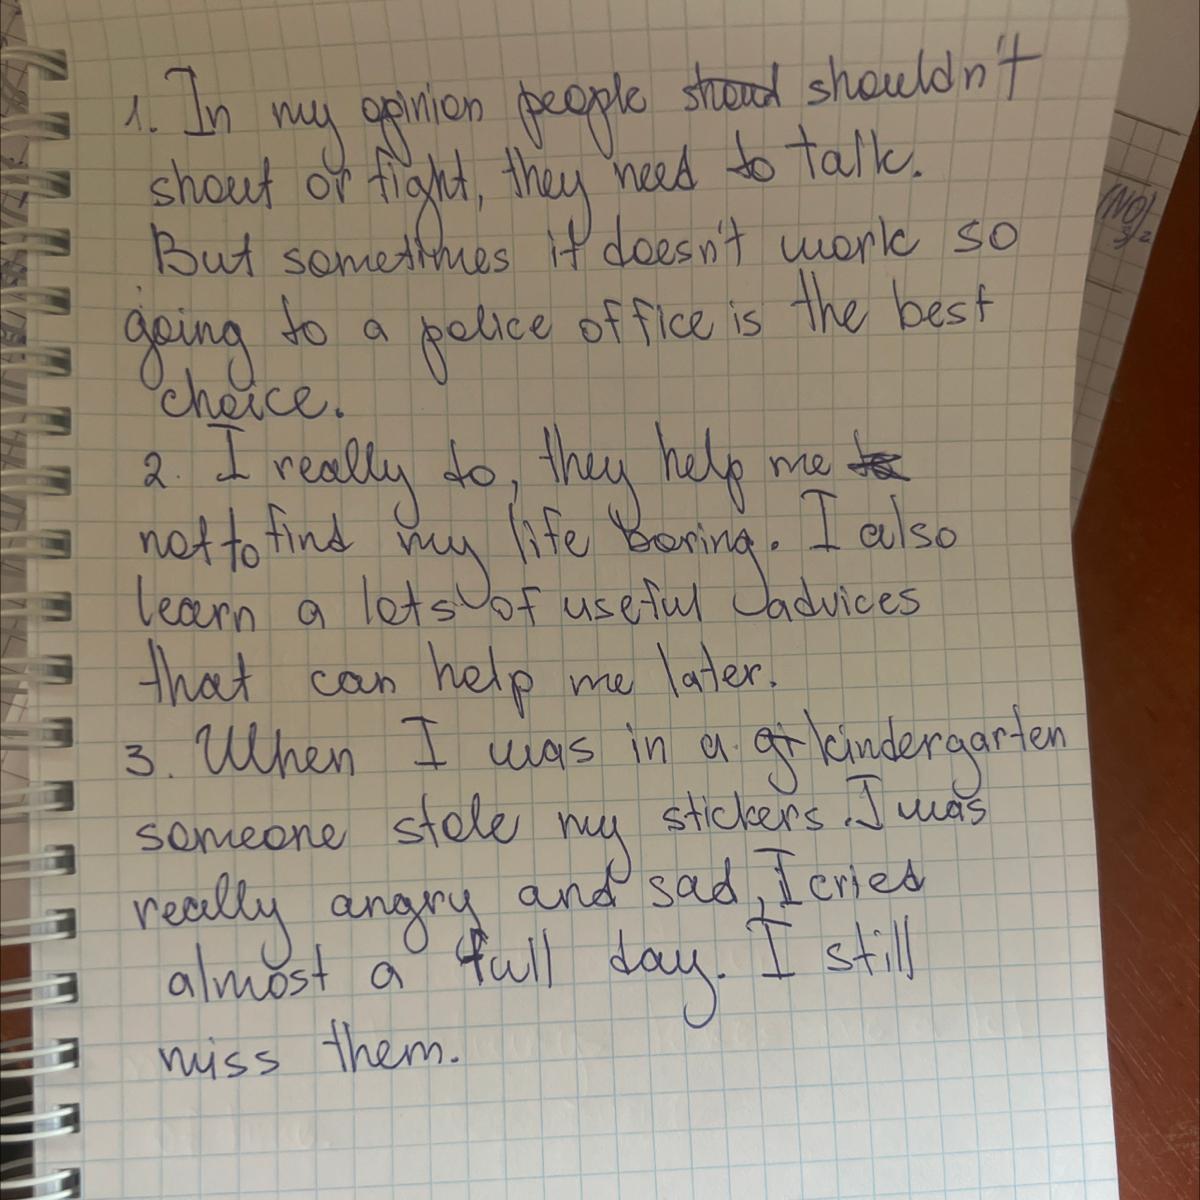 1. In my opinion people shoud shouldn't
shout or fight, they need to talk.
But sometimes it doesn't work so
going to a police office is the best
choice.
2. I really do, they help me to
not to find my life boring. I also
learn a lots of useful advices
that can help me later.
3. When I was in a gr kindergarten
someone stole my stickers. I was
really angry and sad, I cried
almost a full day. I still
miss them.
(NO3)2